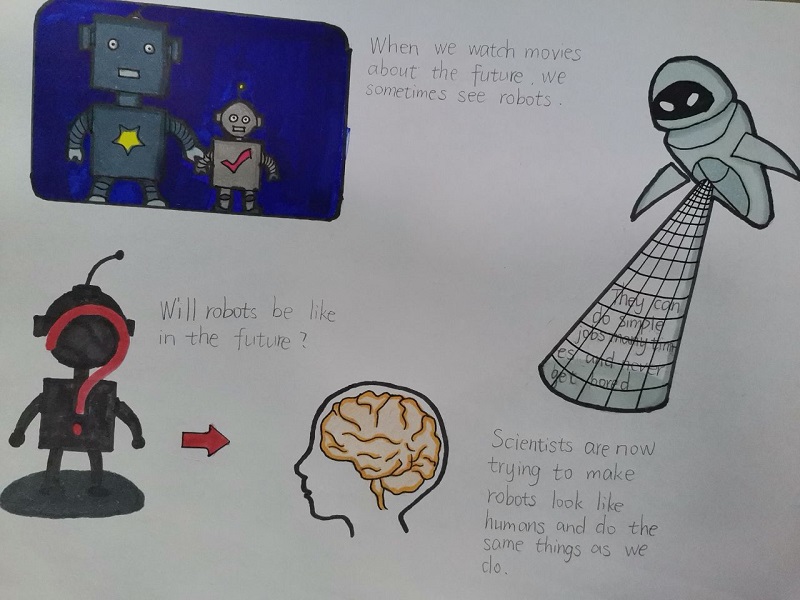 When we watch movies
about the future, we
sometimes see robots.
They can
do simple
jobs many tim-
es and never
get bored
Will robots be like
in the future?
Scientists are now
trying to make
robots look like
humans and do the
same things as we
do.